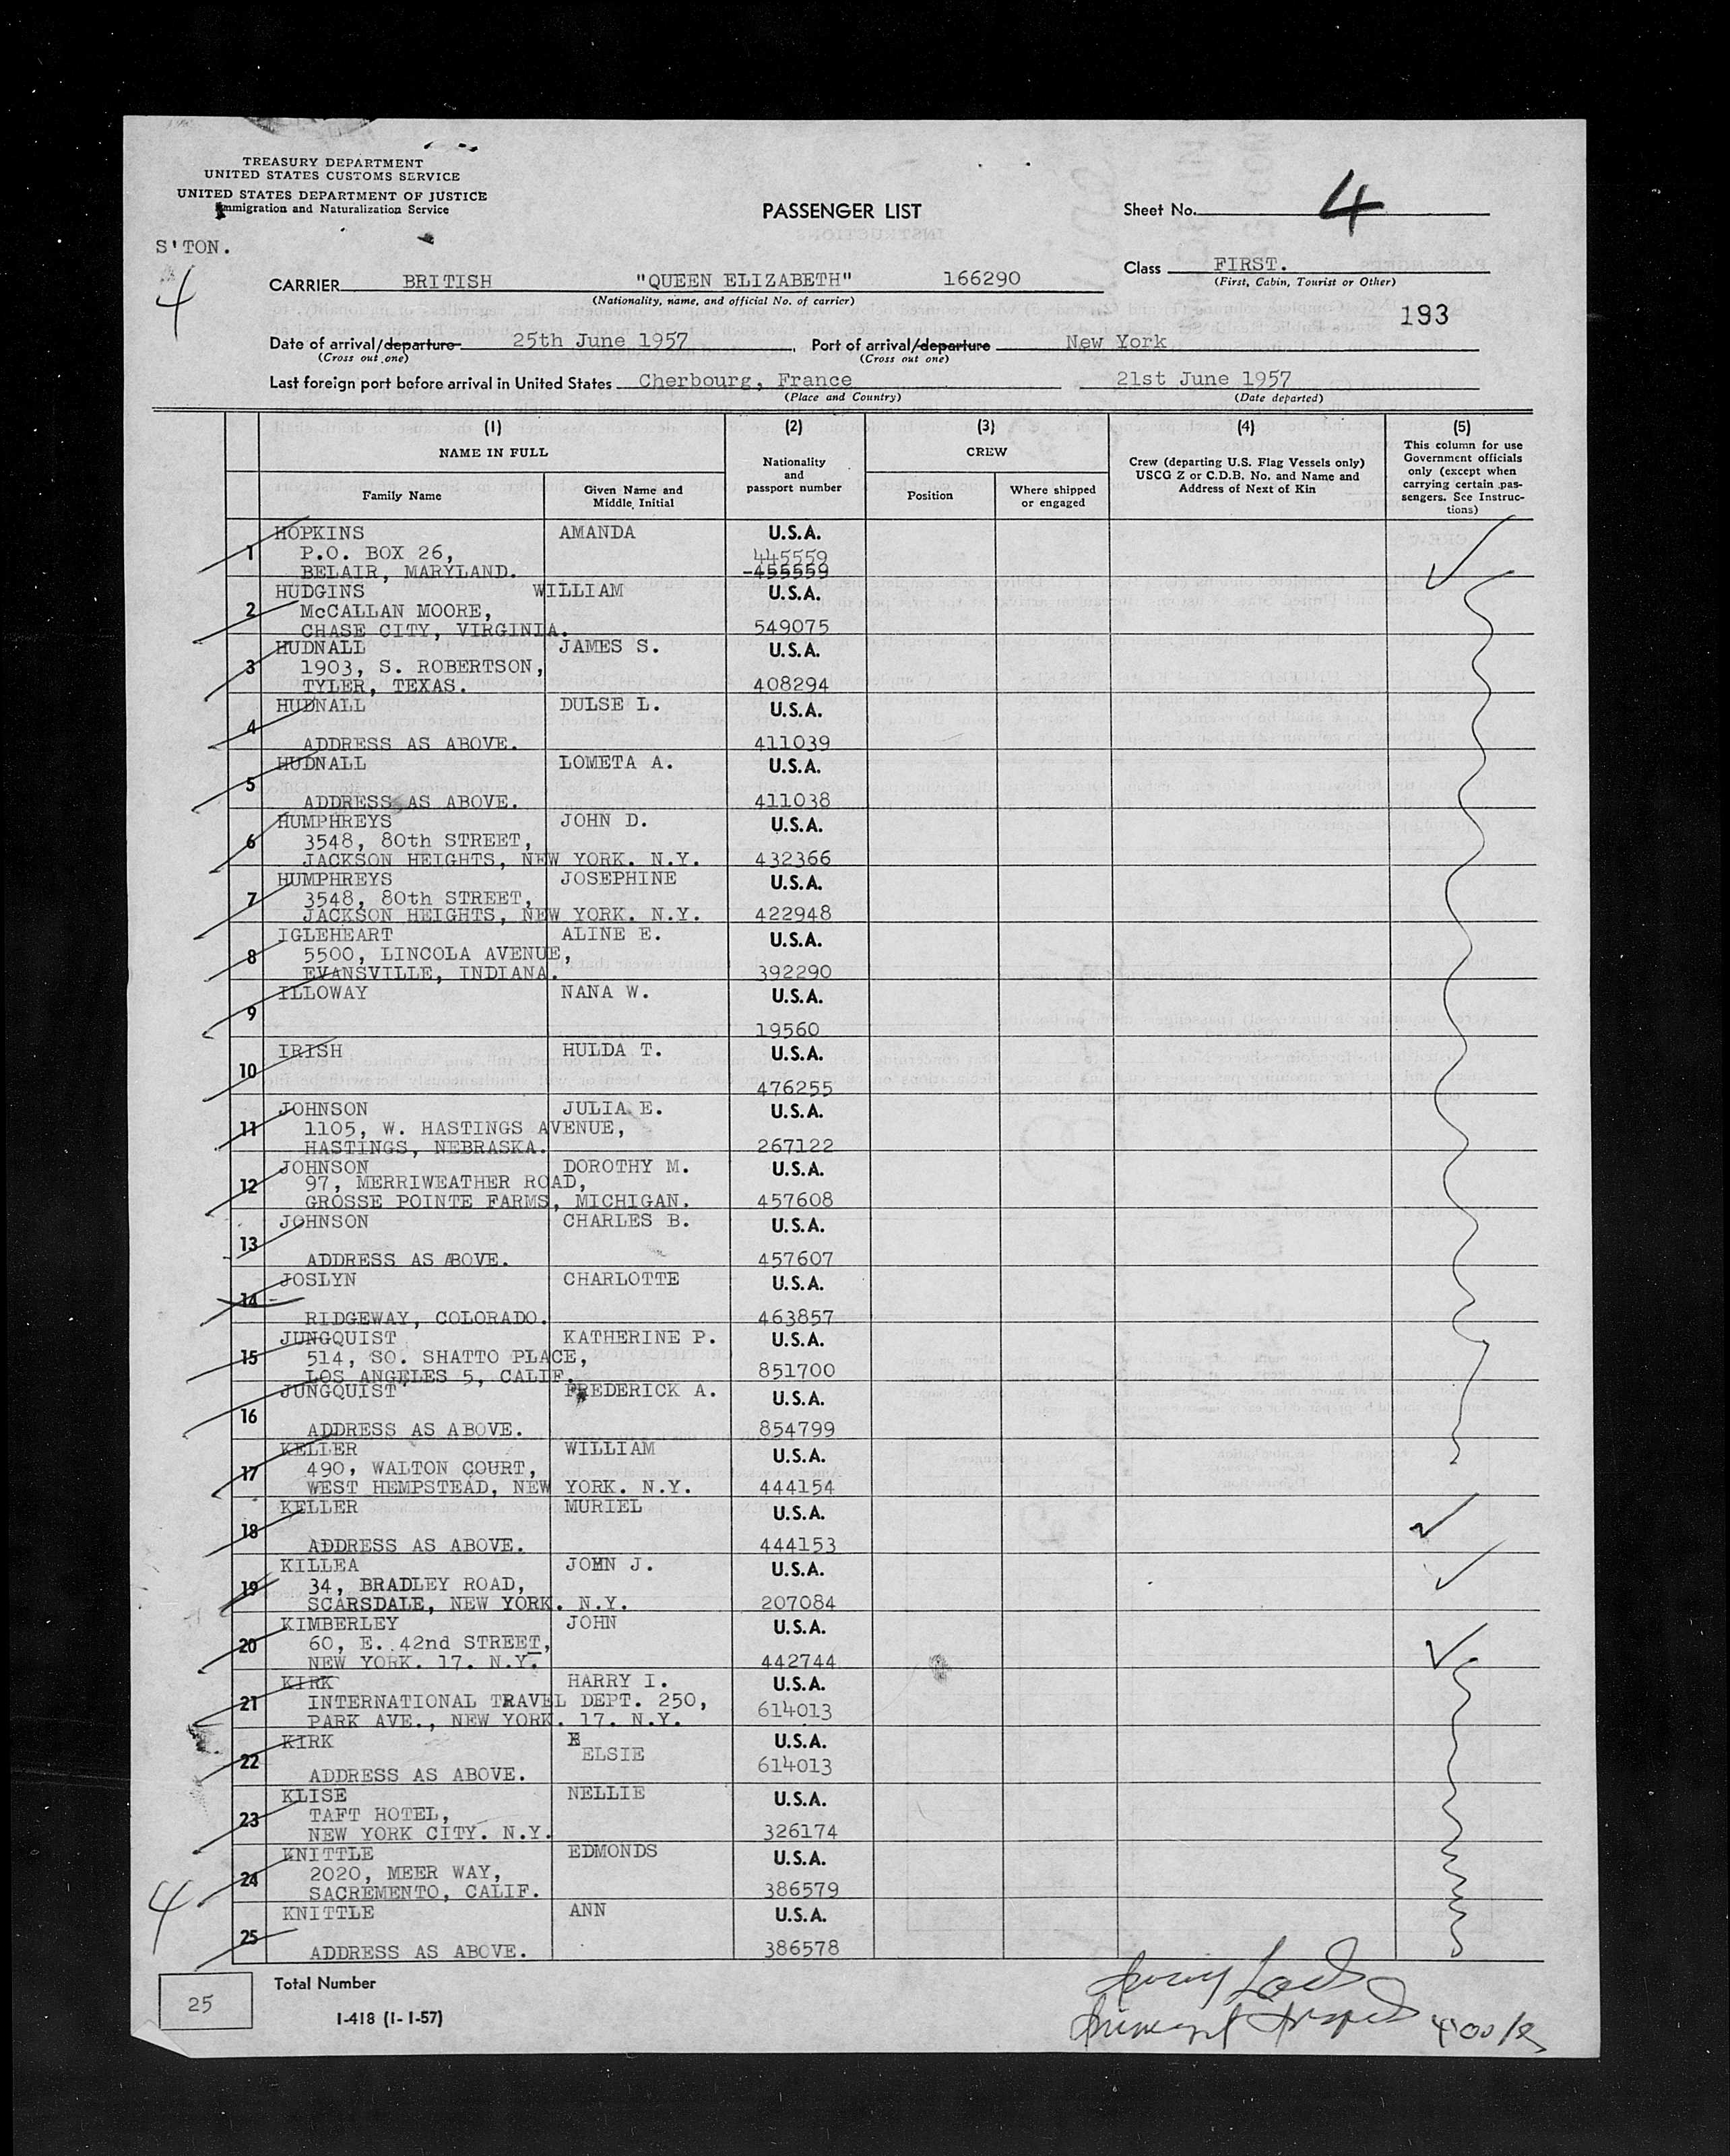 TREASURY DEPARTMENT
UNITED STATES CUSTOMS SERVICE
UNITED STATES DEPARTMENT OF JUSTICE
Immigration and Naturalization Service
PASSENGER LIST
Sheet No. 4
S'TON.
4
Class FIRST.
(First, Cabin, Tourist or Other)
CARRIER BRITISH "QUEEN ELIZABETH" 166290
(Nationality, name, and official No. of carrier)
193
Date of arrival/departure 25th June 1957, Port of arrival/departure New York
(Cross out one) (Cross out one)
Last foreign port before arrival in United States Cherbourg, France 21st June 1957
(Place and Country) (Date departed)
(1) (2) (3) (4) (5)
NAME IN FULL
Family Name
Given Name and Middle Initial
Nationality and passport number
CREW
Position
Where shipped or engaged
Crew (departing U.S. Flag Vessels only) USCG Z or C.D.B. No. and Name and Address of Next of Kin
This column for use Government officials only (except when carrying certain passengers. See Instructions)
1 HOPKINS AMANDA U.S.A.
P.O. BOX 26, 445559
BELAIR, MARYLAND. -455559
2 HUDGINS WILLIAM U.S.A.
McCALLAN MOORE,
CHASE CITY, VIRGINIA. 549075
3 HUDNALL JAMES S. U.S.A.
1903, S. ROBERTSON,
TYLER, TEXAS. 408294
4 HUDNALL DULSE L. U.S.A.
ADDRESS AS ABOVE. 411039
5 HUDNALL LOMETA A. U.S.A.
ADDRESS AS ABOVE. 411038
6 HUMPHREYS JOHN D. U.S.A.
3548, 80th STREET,
JACKSON HEIGHTS, NEW YORK. N.Y. 432366
7 HUMPHREYS JOSEPHINE U.S.A.
3548, 80th STREET,
JACKSON HEIGHTS, NEW YORK. N.Y. 422948
8 IGLEHEART ALINE E. U.S.A.
5500, LINCOLA AVENUE,
EVANSVILLE, INDIANA. 392290
9 ILLOWAY NANA W. U.S.A.
19560
10 IRISH HULDA T. U.S.A.
476255
11 JOHNSON JULIA E. U.S.A.
1105, W. HASTINGS AVENUE,
HASTINGS, NEBRASKA. 267122
12 JOHNSON DOROTHY M. U.S.A.
97, MERRIWEATHER ROAD,
GROSSE POINTE FARMS, MICHIGAN. 457608
13 JOHNSON CHARLES B. U.S.A.
ADDRESS AS ABOVE. 457607
14 JOSLYN CHARLOTTE U.S.A.
RIDGEWAY, COLORADO. 463857
15 JUNGQUIST KATHERINE P. U.S.A.
514, SO. SHATTO PLACE,
LOS ANGELES 5, CALIF. 851700
16 JUNGQUIST FREDERICK A. U.S.A.
ADDRESS AS ABOVE. 854799
17 KELLER WILLIAM U.S.A.
490, WALTON COURT,
WEST HEMPSTEAD, NEW YORK. N.Y. 444154
18 KELLER MURIEL U.S.A.
ADDRESS AS ABOVE. 444153
19 KILLEA JOHN J. U.S.A.
34, BRADLEY ROAD,
SCARSDALE, NEW YORK. N.Y. 207084
20 KIMBERLEY JOHN U.S.A.
60, E. 42nd STREET,
NEW YORK. 17. N.Y. 442744
21 KIRK HARRY I. U.S.A.
INTERNATIONAL TRAVEL DEPT. 250, 614013
PARK AVE., NEW YORK. 17. N.Y.
22 KIRK ELSIE U.S.A.
614013
ADDRESS AS ABOVE.
23 KLISE NELLIE U.S.A.
TAFT HOTEL,
NEW YORK CITY. N.Y. 326174
24 KNITTLE EDMONDS U.S.A.
2020, MEER WAY,
SACREMENTO, CALIF. 386579
4
25 KNITTLE ANN U.S.A.
ADDRESS AS ABOVE. 386578
25 Total Number
I-418 (1-1-57)